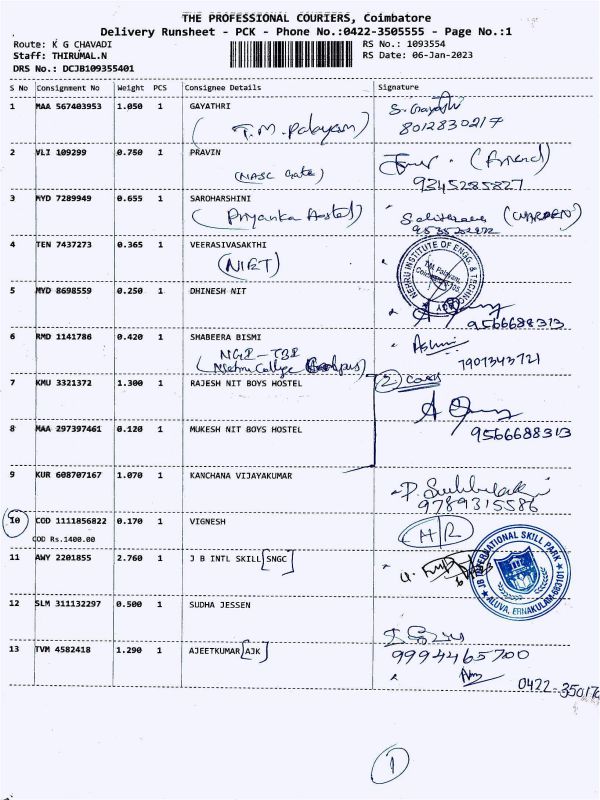 THE PROFESSIONAL COURIERS, Coimbatore
Delivery Runsheet - PCK - Phone No.:0422-3505555 - Page No.:1
Route: K G CHAVADI
RS No.: 1093554
Staff: THIRUMAL.N
RS Date: 06-Jan-2023
DRS No.: DCJB109355401
S No Consignment No Weight PCS Consignee Details Signature
1 MAA 567403953 1.050 1 GAYATHRI
(T.M. Palayam) 8012830217
2 VLI 109299 0.750 1 PRAVIN
(NASC Gate) 9345285827
3 MYD 7289949 0.655 1 SAROHARSHINI
(Priyanka Hostel) (WARDEN)
4 TEN 7437273 0.365 1 VEERASIVASAKTHI
(NIET)
NEHRU INSTITUTE OF ENGG. & TECHNOLOGY
T.M. Palayam,
Coimbatore-105.
5 MYD 8698559 0.250 1 DHINESH NIT
9566688313
6 RMD 1141786 0.420 1 SHABEERA BISMI
NGI-TBI Ashni
(Nehru College Campus) 7907343721
7 KMU 3321372 1.300 1 RAJESH NIT BOYS HOSTEL
2 Covers
8 MAA 297397461 0.120 1 MUKESH NIT BOYS HOSTEL
9566688313
9 KUR 608707167 1.070 1 KANCHANA VIJAYAKUMAR
9789315586
10 COD 1111856822 0.170 1 VIGNESH
COD Rs.1400.00
H/R
11 AWY 2201855 2.760 1 J B INTL SKILL [SNGC]
JB INTERNATIONAL SKILL PARK
ALUVA, ERNAKULAM-683101
12 SLM 311132297 0.500 1 SUDHA JESSEN
9994465700
13 TVM 4582418 1.290 1 AJEETKUMAR [AJK]
0422-350176
1